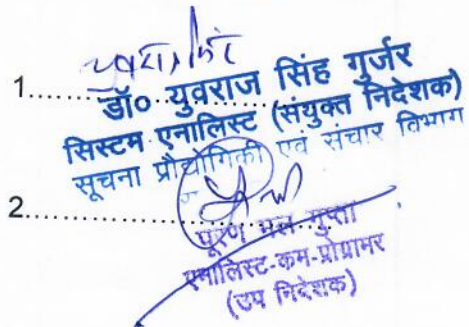 1..........
डॉ० युवराज सिंह गुर्जर
सिस्टम एनालिस्ट (संयुक्त निदेशक)
सूचना प्रौद्योगिकी एवं संचार विभाग
2..........
पूरण मल गुप्ता
एनालिस्ट-कम-प्रोग्रामर
(उप निदेशक)